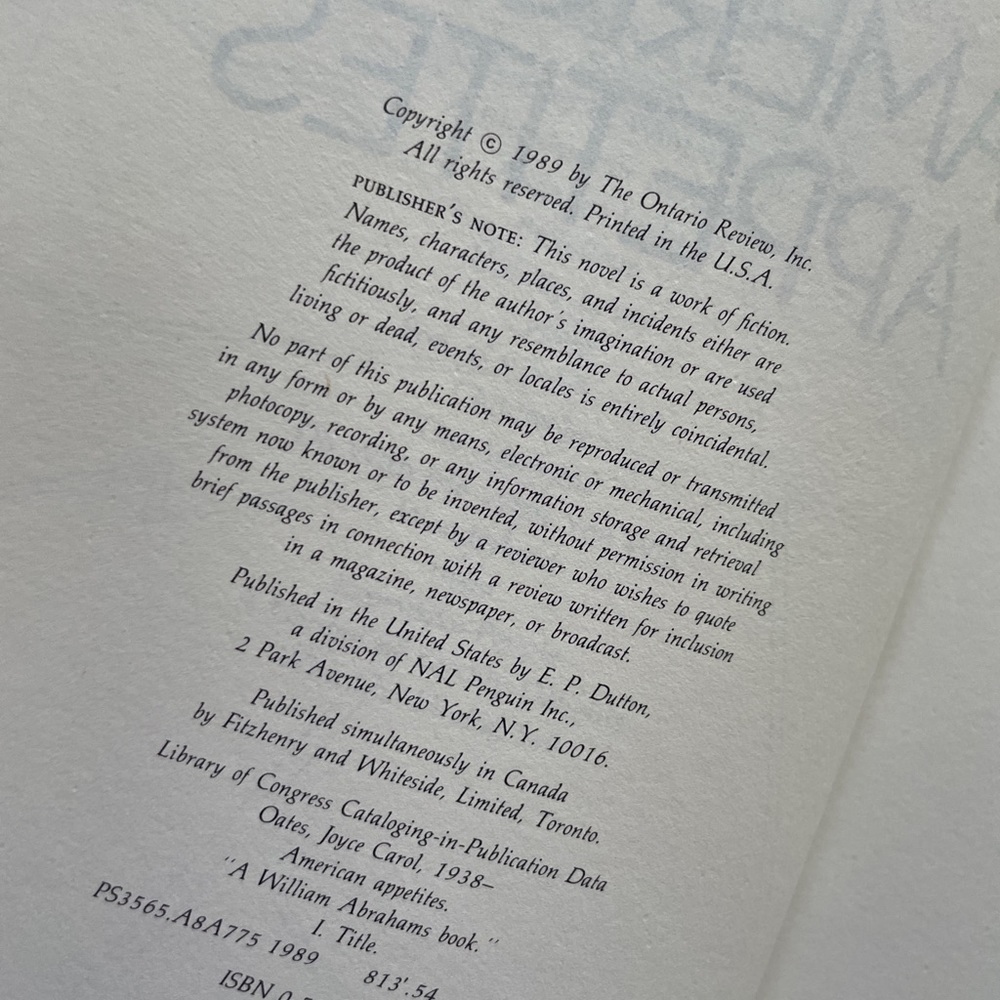 Copyright © 1989 by The Ontario Review, Inc.
All rights reserved. Printed in the U.S.A.
PUBLISHER'S NOTE: This novel is a work of fiction.
Names, characters, places, and incidents either are
the product of the author's imagination or are used
fictitiously, and any resemblance to actual persons,
living or dead, events, or locales is entirely coincidental.
No part of this publication may be reproduced or transmitted
in any form or by any means, electronic or mechanical, including
photocopy, recording, or any information storage and retrieval
system now known or to be invented, without permission in writing
from the publisher, except by a reviewer who wishes to quote
brief passages in connection with a review written for inclusion
in a magazine, newspaper, or broadcast.
Published in the United States by E. P. Dutton,
a division of NAL Penguin Inc.,
2 Park Avenue, New York, N.Y. 10016.
Published simultaneously in Canada
by Fitzhenry and Whiteside, Limited, Toronto.
Library of Congress Cataloging-in-Publication Data
Oates, Joyce Carol, 1938–
American appetites.
"A William Abrahams book."
I. Title.
PS3565.A8A775 1989 813'.54
ISBN 0